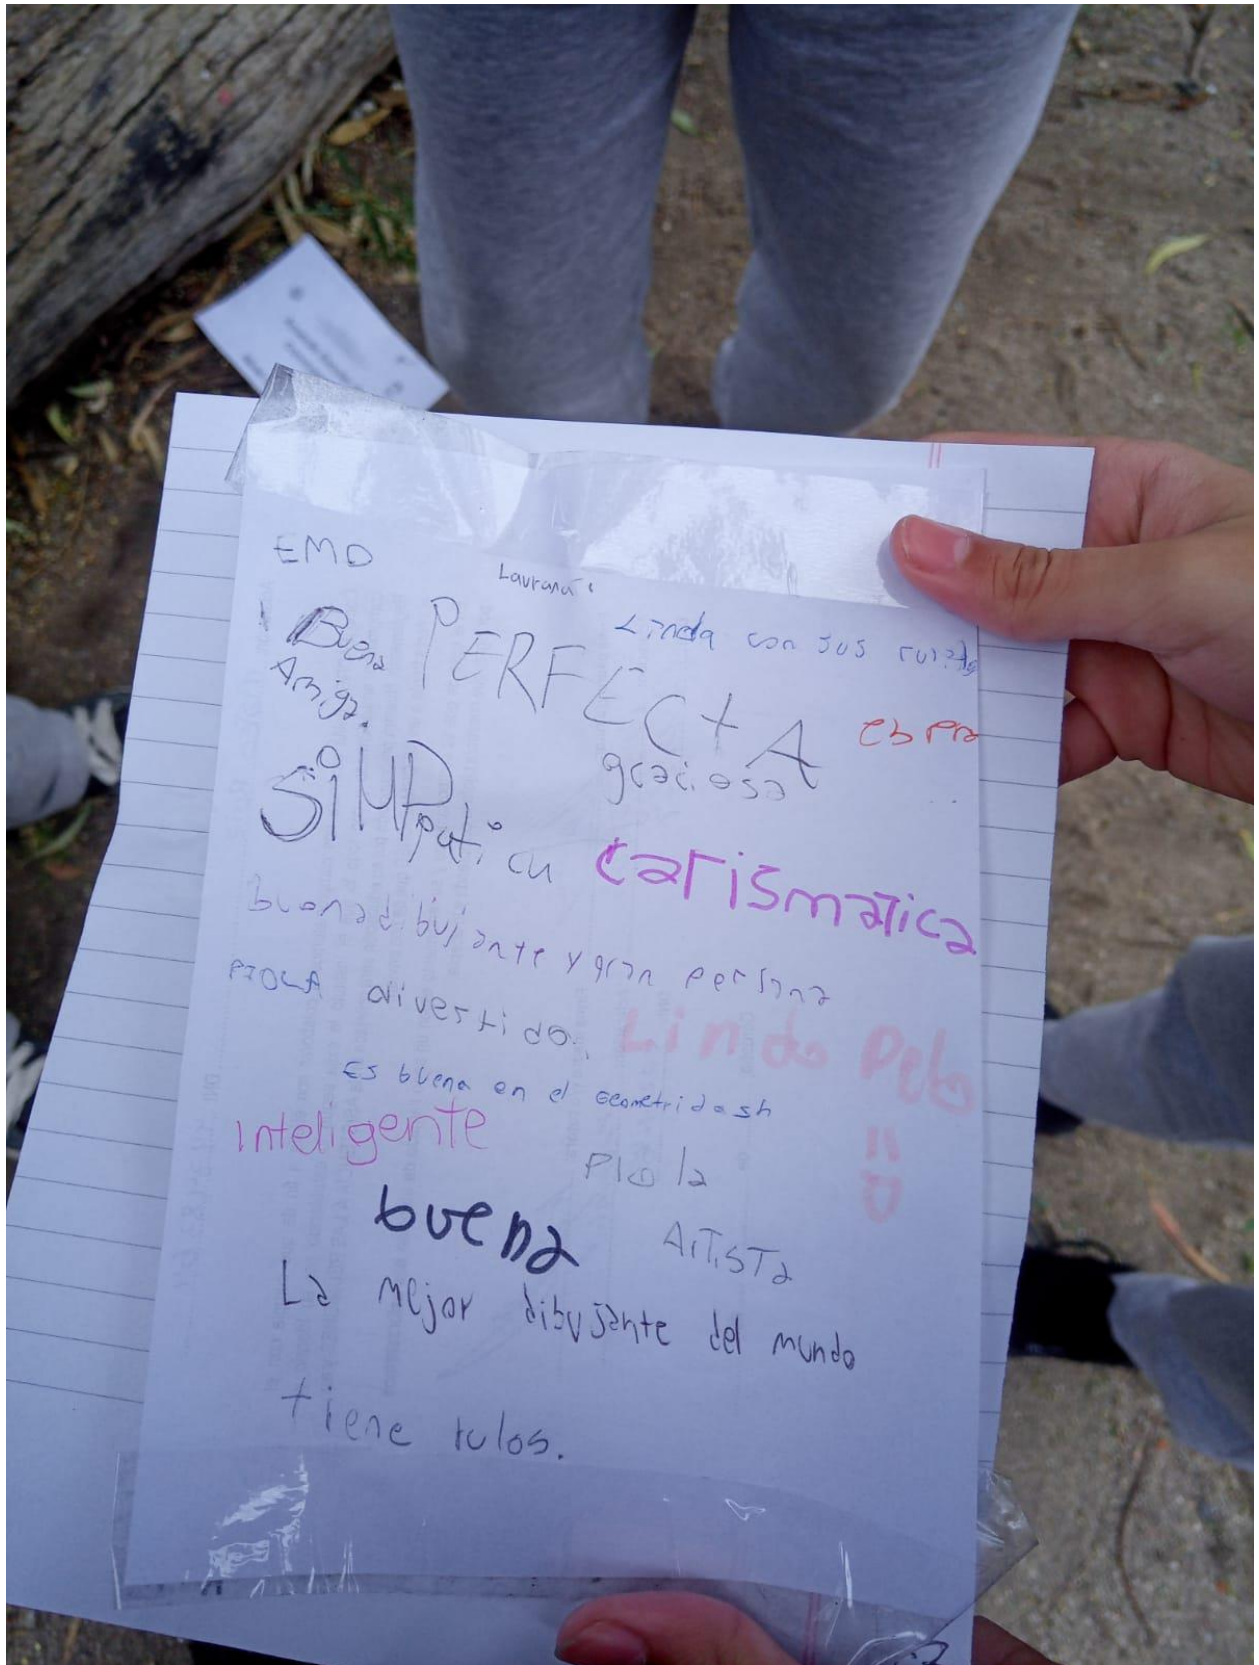 EMO
Buena
Amiga.
PERFECtA
Linda con sus
graciosa
SiMPpatica
carismatica
buena dibujante y gran persona
PIOLA divertido.
Lindo Pelo
=D
Es buena en el Geometridash
Inteligente
PIOla
buena
ArTisTa
La mejor dibujante del mundo
tiene rulos.